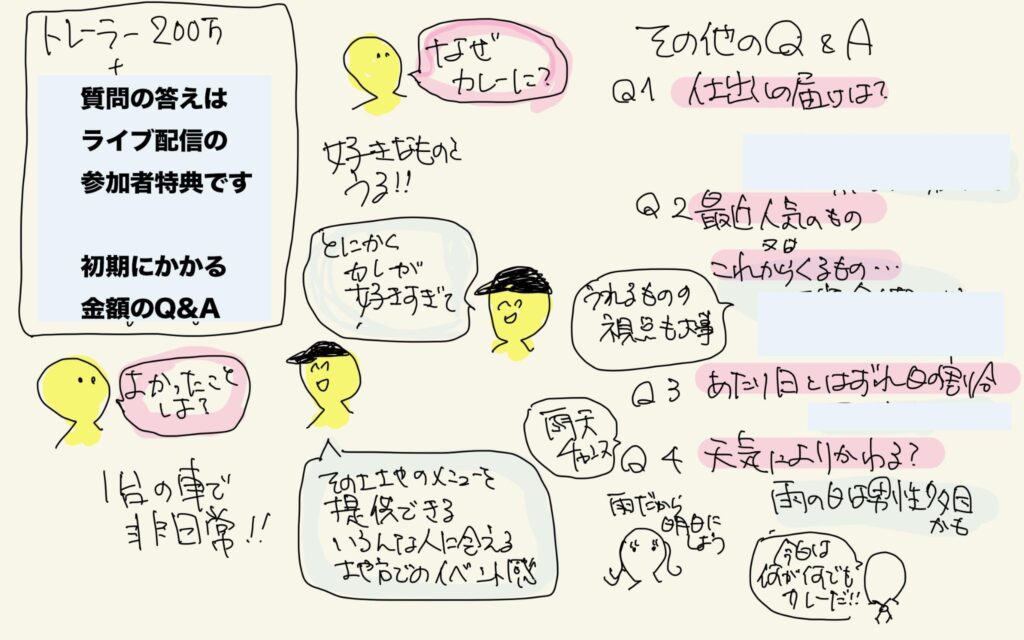 トレーラー 200万
+
質問の答えは
ライブ配信の
参加者特典です
初期にかかる
金額のQ&A
なぜ
カレーに?
好きなものを
うる!!
とにかく
カレーが
好きすぎて
よかったこと
しは?
1台の車で
非日常!!
その土地のメニューを
提供できる
いろんな人に会える
地方でのイベント感
その他のQ&A
Q1 仕出しの届けは?
Q2 最近人気のもの
又は
これからくるもの…
うれるものの
視点も大事
Q3 あたり日とはずれ日の割合
雨天
チャンス
Q4 天気によりかわる?
雨の日は男性多目
かも
雨だから
明日に
しよう
今日は
何が何でも
カレーだ!!